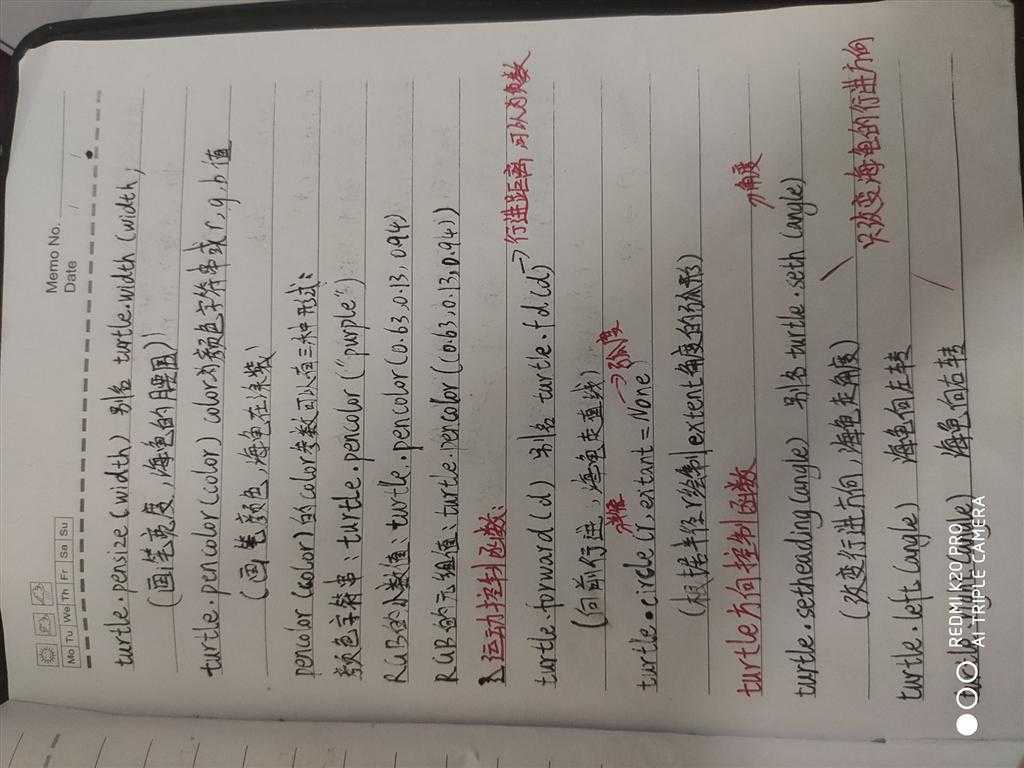 Memo No.
Date / /
Mo Tu We Th Fr Sa Su
turtle.pensize(width) 别名 turtle.width(width)
(画笔宽度,海龟的腰围)
turtle.pencolor(color) color为颜色字符串或r,g,b值
(画笔颜色,海龟在涂装)
pencolor(color)的color参数可以有三种形式:
颜色字符串:turtle.pencolor("purple")
RGB的小数值:turtle.pencolor(0.63,0.13,0.94)
RGB的元组值:turtle.pencolor((0.63,0.13,0.94))
运动控制函数:
turtle.forward(d) 别名 turtle.fd(d) →行进距离,可以为负数
(向前行进,海龟走直线)
turtle.circle(r,extant=None) →弧度
半径
(根据半径r绘制extent角度的弧形)
turtle方向控制函数
turtle.setheading(angle) 别名turtle.seth(angle) 角度
(改变行进方向,海龟走角度)
只改变海龟的行进方向
turtle.left(angle) 海龟向左转
turtle.right(angle) 海龟向右转
REDMI K20 PRO
AI TRIPLE CAMERA